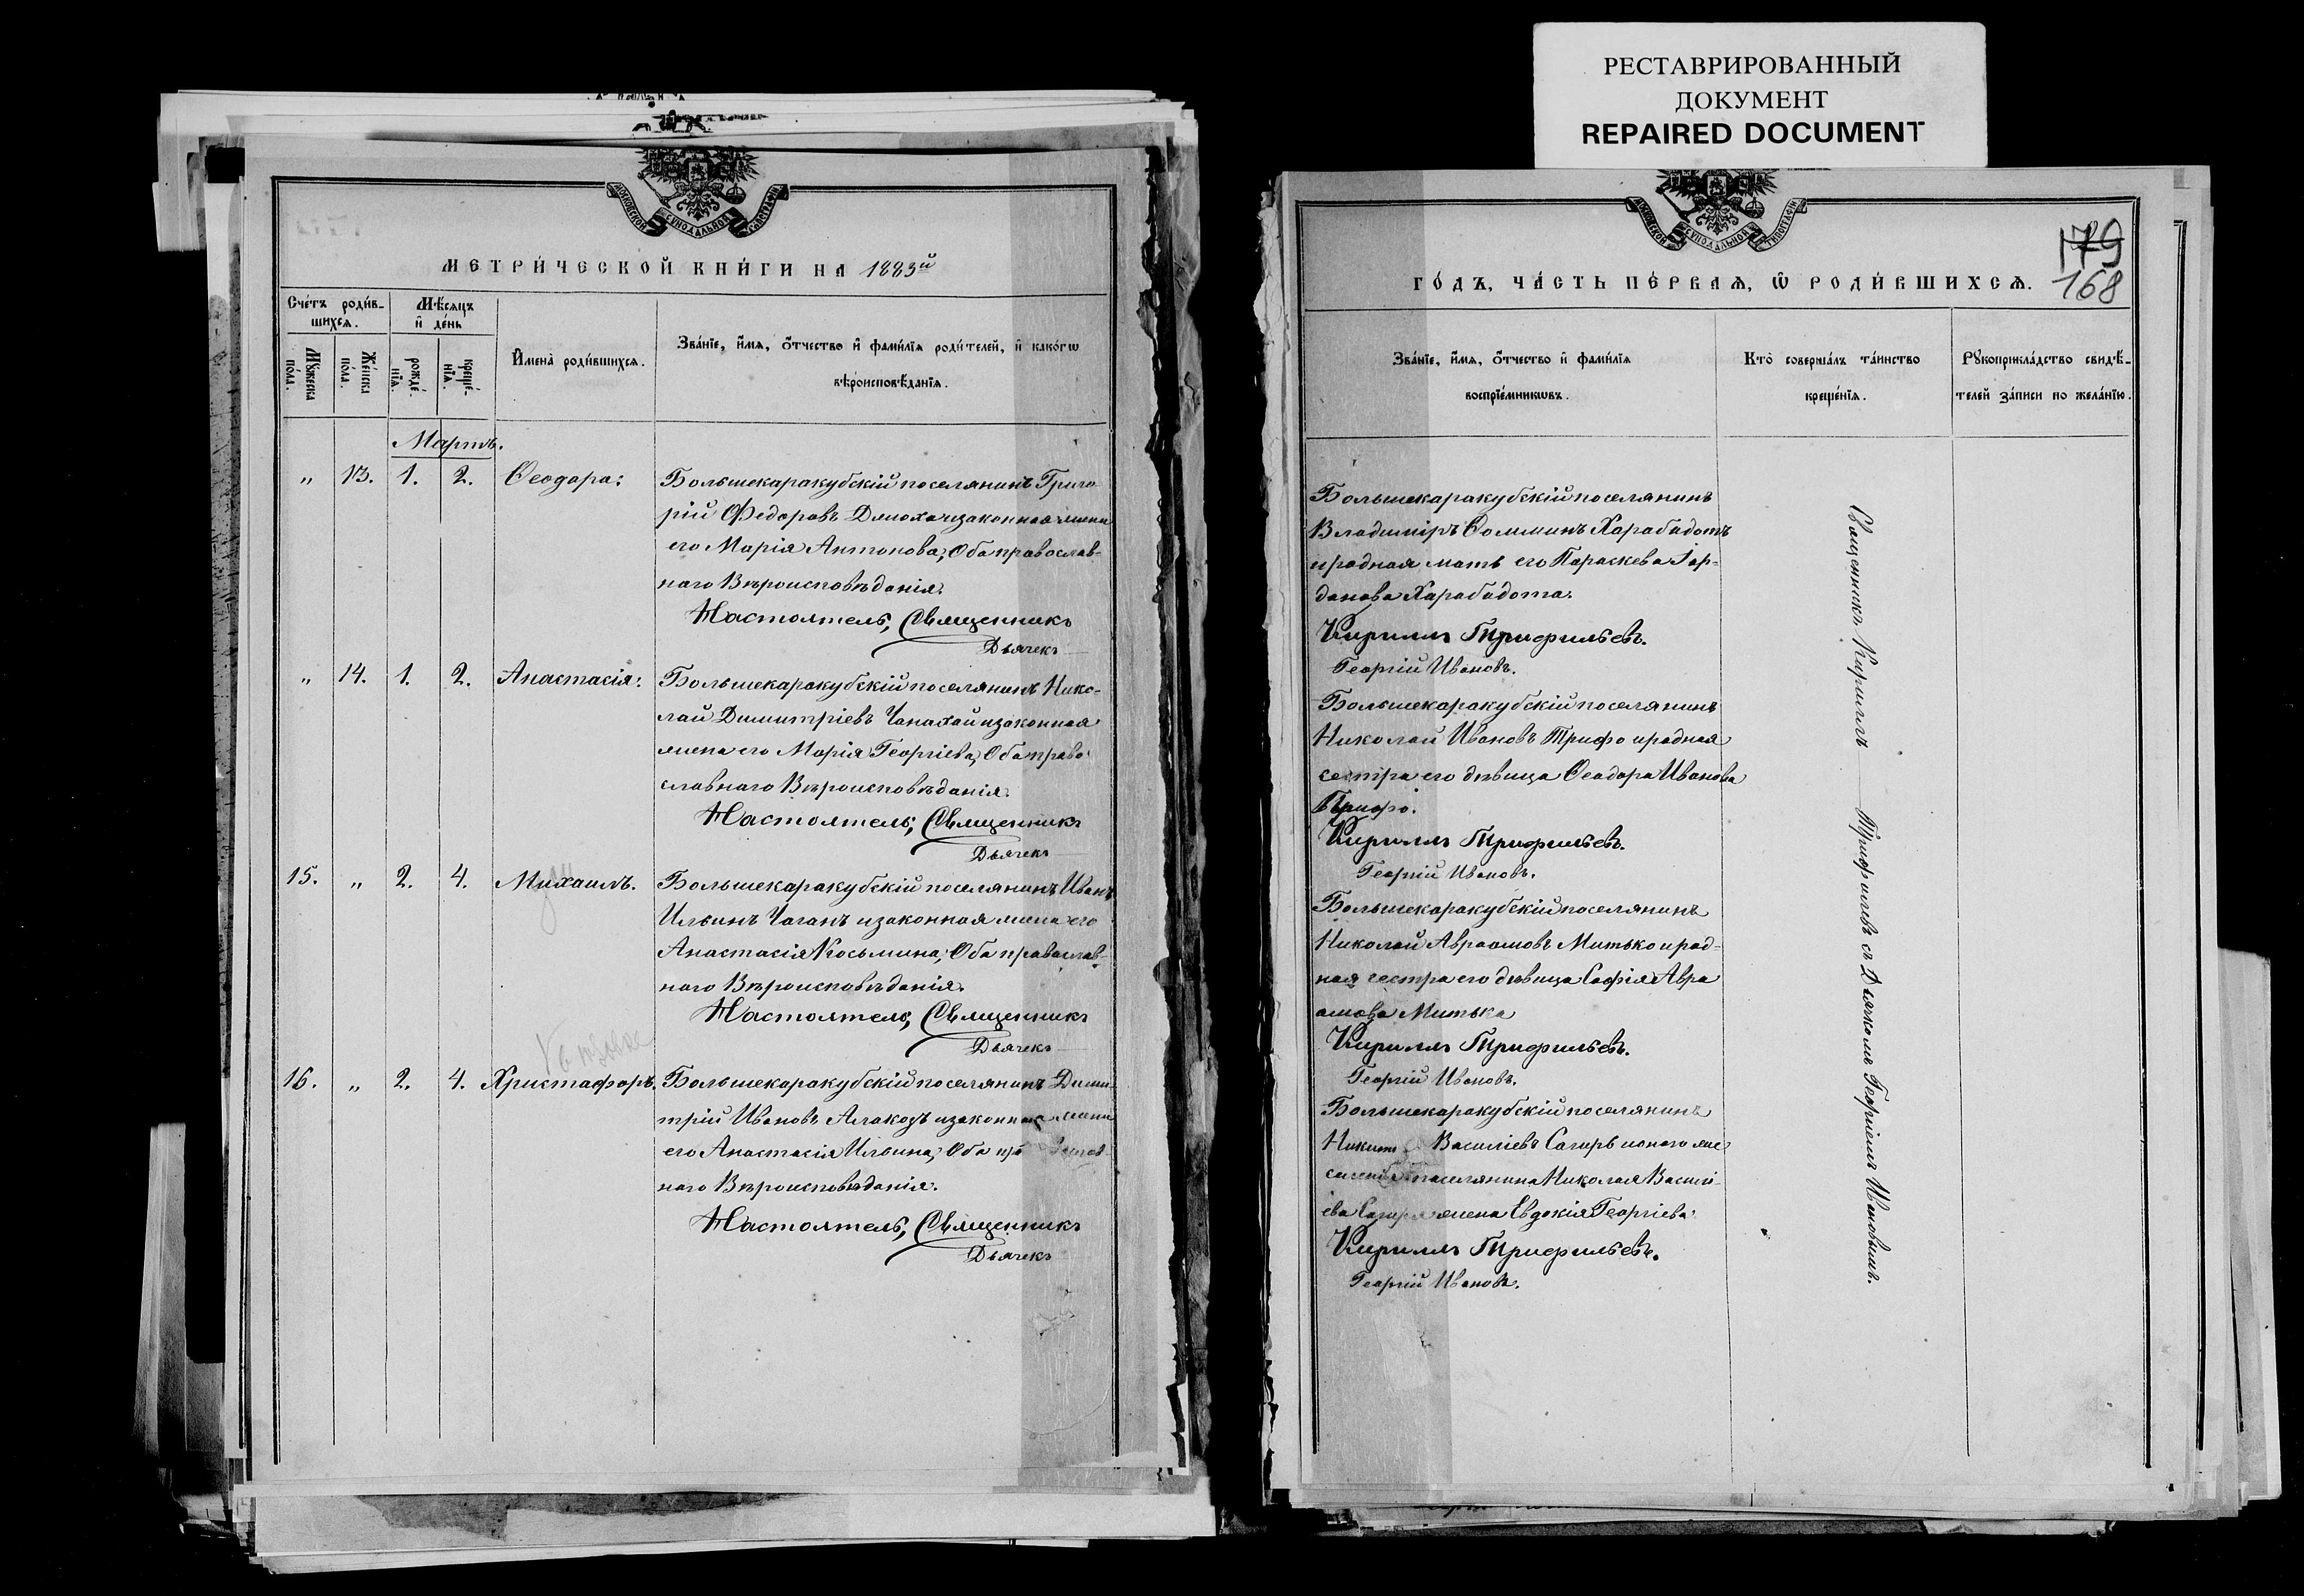 РЕСТАВРИРОВАННЫЙ
ДОКУМЕНТ
REPAIRED DOCUMENT
МОСКОВСКОЙ СУНОДАЛЬНОЙ ТИПОГРАФІИ
МЕТРИ́ЧЕСКОЙ КНИ́ГИ НА 1883й
Сче́тъ роди́в-
шихсѧ.
Мѣ́сѧцъ
и҆ де́нь
Мꙋ́жеска
по́ла.
Же́нска
по́ла.
рожде́-
нїѧ.
креще́-
нїѧ.
И҆мена̀ роди́вшихсѧ.
Зва́нїе, и҆́мѧ, ѻ҆́тчество и҆ фами́лїѧ роди́телей, и҆ како́гѡ
вѣроисповѣ́данїѧ.
Мартъ.
„ 13. 1. 2. Ѳеодора:
Большекаракубскій поселянинъ Григо
рій Федоровъ Дяпоха и законная жена
его Марія Антонова, Оба православ-
наго Вѣроисповѣданія.
Настоятель, Священникъ
Дьячекъ
„ 14. 1. 2. Анастасія:
Большекаракубскій поселянинъ Нико-
лай Димитріевъ Чанахай и законная
жена его Марія Георгіева, Оба право-
славнаго Вѣроисповѣданія.
Настоятель, Священникъ
Дьячекъ
15. „ 2. 4. Михаилъ.
Большекаракубскій поселянинъ Иванъ
Ильинъ Чаганъ и законная жена его
Анастасія Косьмина, Оба православ-
наго Вѣроисповѣданія.
Настоятель, Священникъ
Дьячекъ
16. „ 2. 4. Христофоръ.
Большекаракубскій поселянинъ Дими-
трій Ивановъ Алакозъ и законная жена
его Анастасія Ильина, Оба
наго Вѣроисповѣданія.
Настоятель, Священникъ
Дьячекъ
МОСКОВСКОЙ СУНОДАЛЬНОЙ ТИПОГРАФІИ
179
168
ГО́ДЪ, ЧА́СТЬ ПЕ́РВАѦ, Ѡ҆ РОДИ́ВШИХСѦ.
Зва́нїе, и҆́мѧ, ѻ҆́тчество и҆ фами́лїѧ
воспрїе́мникѡвъ.
Кто̀ соверша́лъ та́инство
креще́нїѧ.
Рꙋкоприкла́дство свидѣ́-
телей за́писи по жела́нїю.
Большекаракубскій поселянинъ
Владиміръ Ѳоминъ Харабадотъ
и родная мать его Параскева Іор-
данова Харабадота.
Кириллъ Трифильевъ.
Георгій Ивановъ.
Большекаракубскій поселянинъ
Николай Ивановъ Трифо и родная
сестра его дѣвица Ѳеодора Иванова
Трифо.
Кириллъ Трифильевъ.
Георгій Ивановъ.
Большекаракубскій поселянинъ
Николай Авраамовъ Митько и род-
ная сестра его дѣвица Софія Авра
амова Митька
Кириллъ Трифильевъ.
Георгій Ивановъ.
Большекаракубскій поселянинъ
Василіевъ Сагиръ и онаго же
поселянина Николая Васил
іева Сагиря жена Евдокія Георгіева.
Кириллъ Трифильевъ.
Георгій Ивановъ.
Священникъ Кириллъ Трифильевъ съ Дьячкомъ Георгіемъ Ивановымъ.